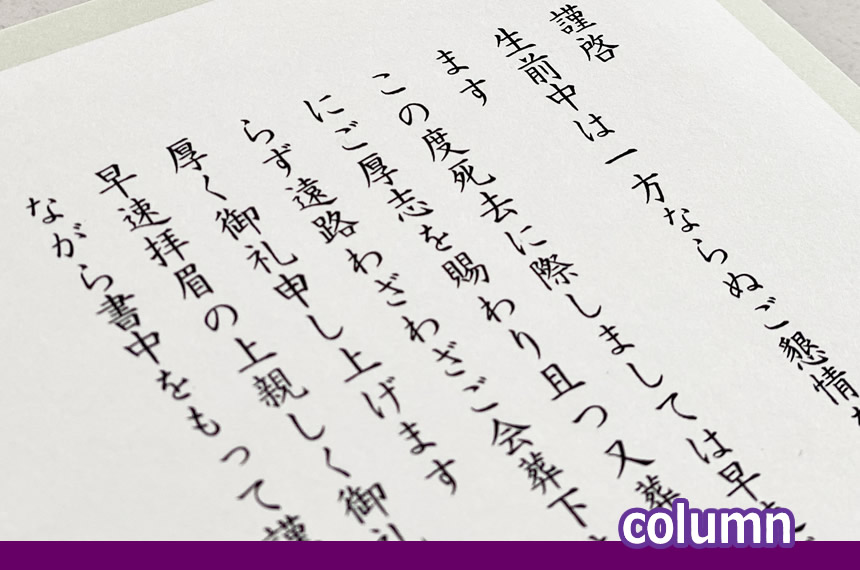 謹啓
生前中は一方ならぬご懇情
ます
この度死去に際しましては早
にご厚志を賜わり且つ又葬
らず遠路わざわざご会葬下
厚く御礼申し上げます
早速拝眉の上親しく御礼
ながら書中をもって謹
column